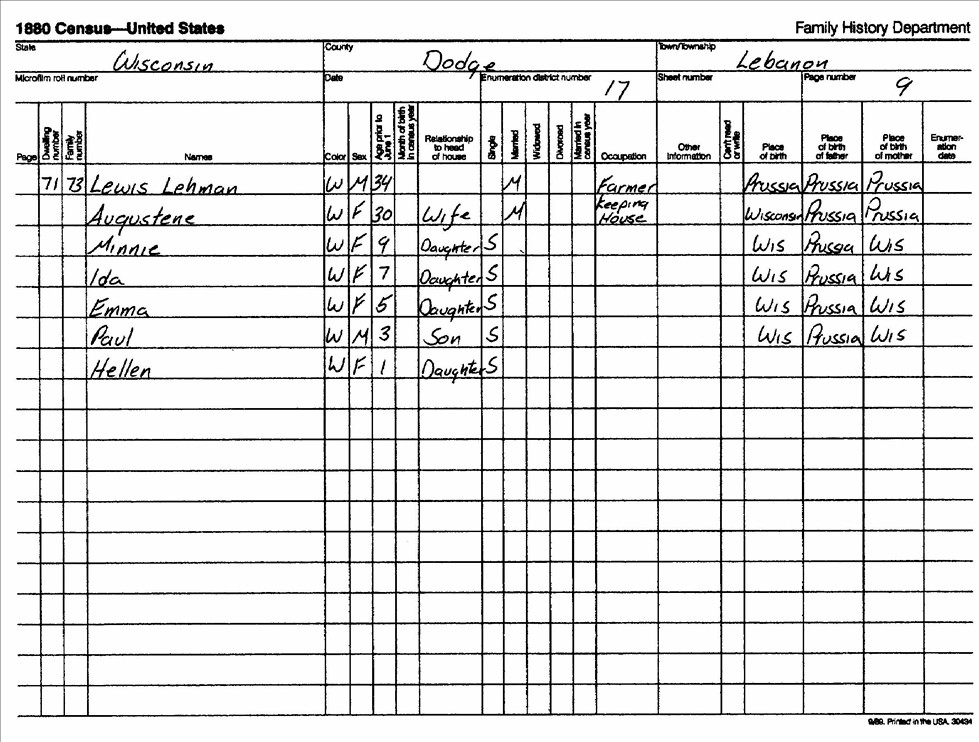 1880 Census—United States Family History Department
State Wisconsin County Dodge Town/Township Lebanon
Microfilm roll number Date Enumeration district number 17 Sheet number Page number 9
Page Dwelling number Family number Names Color Sex Age prior to June 1 Month of birth in census year Relationship to head of house Single Married Widowed Divorced Married in census year Occupation Other information Can't read or write Place of birth Place of birth of father Place of birth of mother Enumer-ation date
71 73 Lewis Lehman W M 34 M Farmer Prussia Prussia Prussia
Augustene W F 30 Wife M Keeping House Wisconsin Prussia Prussia
Minnie W F 9 Daughter S Wis Prussa Wis
Ida W F 7 Daughter S Wis Prussia Wis
Emma W F 5 Daughter S Wis Prussia Wis
Paul W M 3 Son S Wis Prussia Wis
Hellen W F 1 Daughter S
9/89. Printed in the USA. 30434